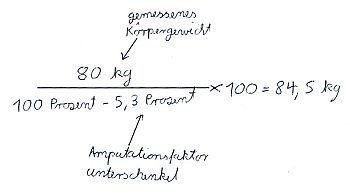 gemessenes
Körpergewicht
80 kg
100 Prozent - 5,3 Prozent × 100 = 84,5 kg
Amputationsfaktor
Unterschenkel